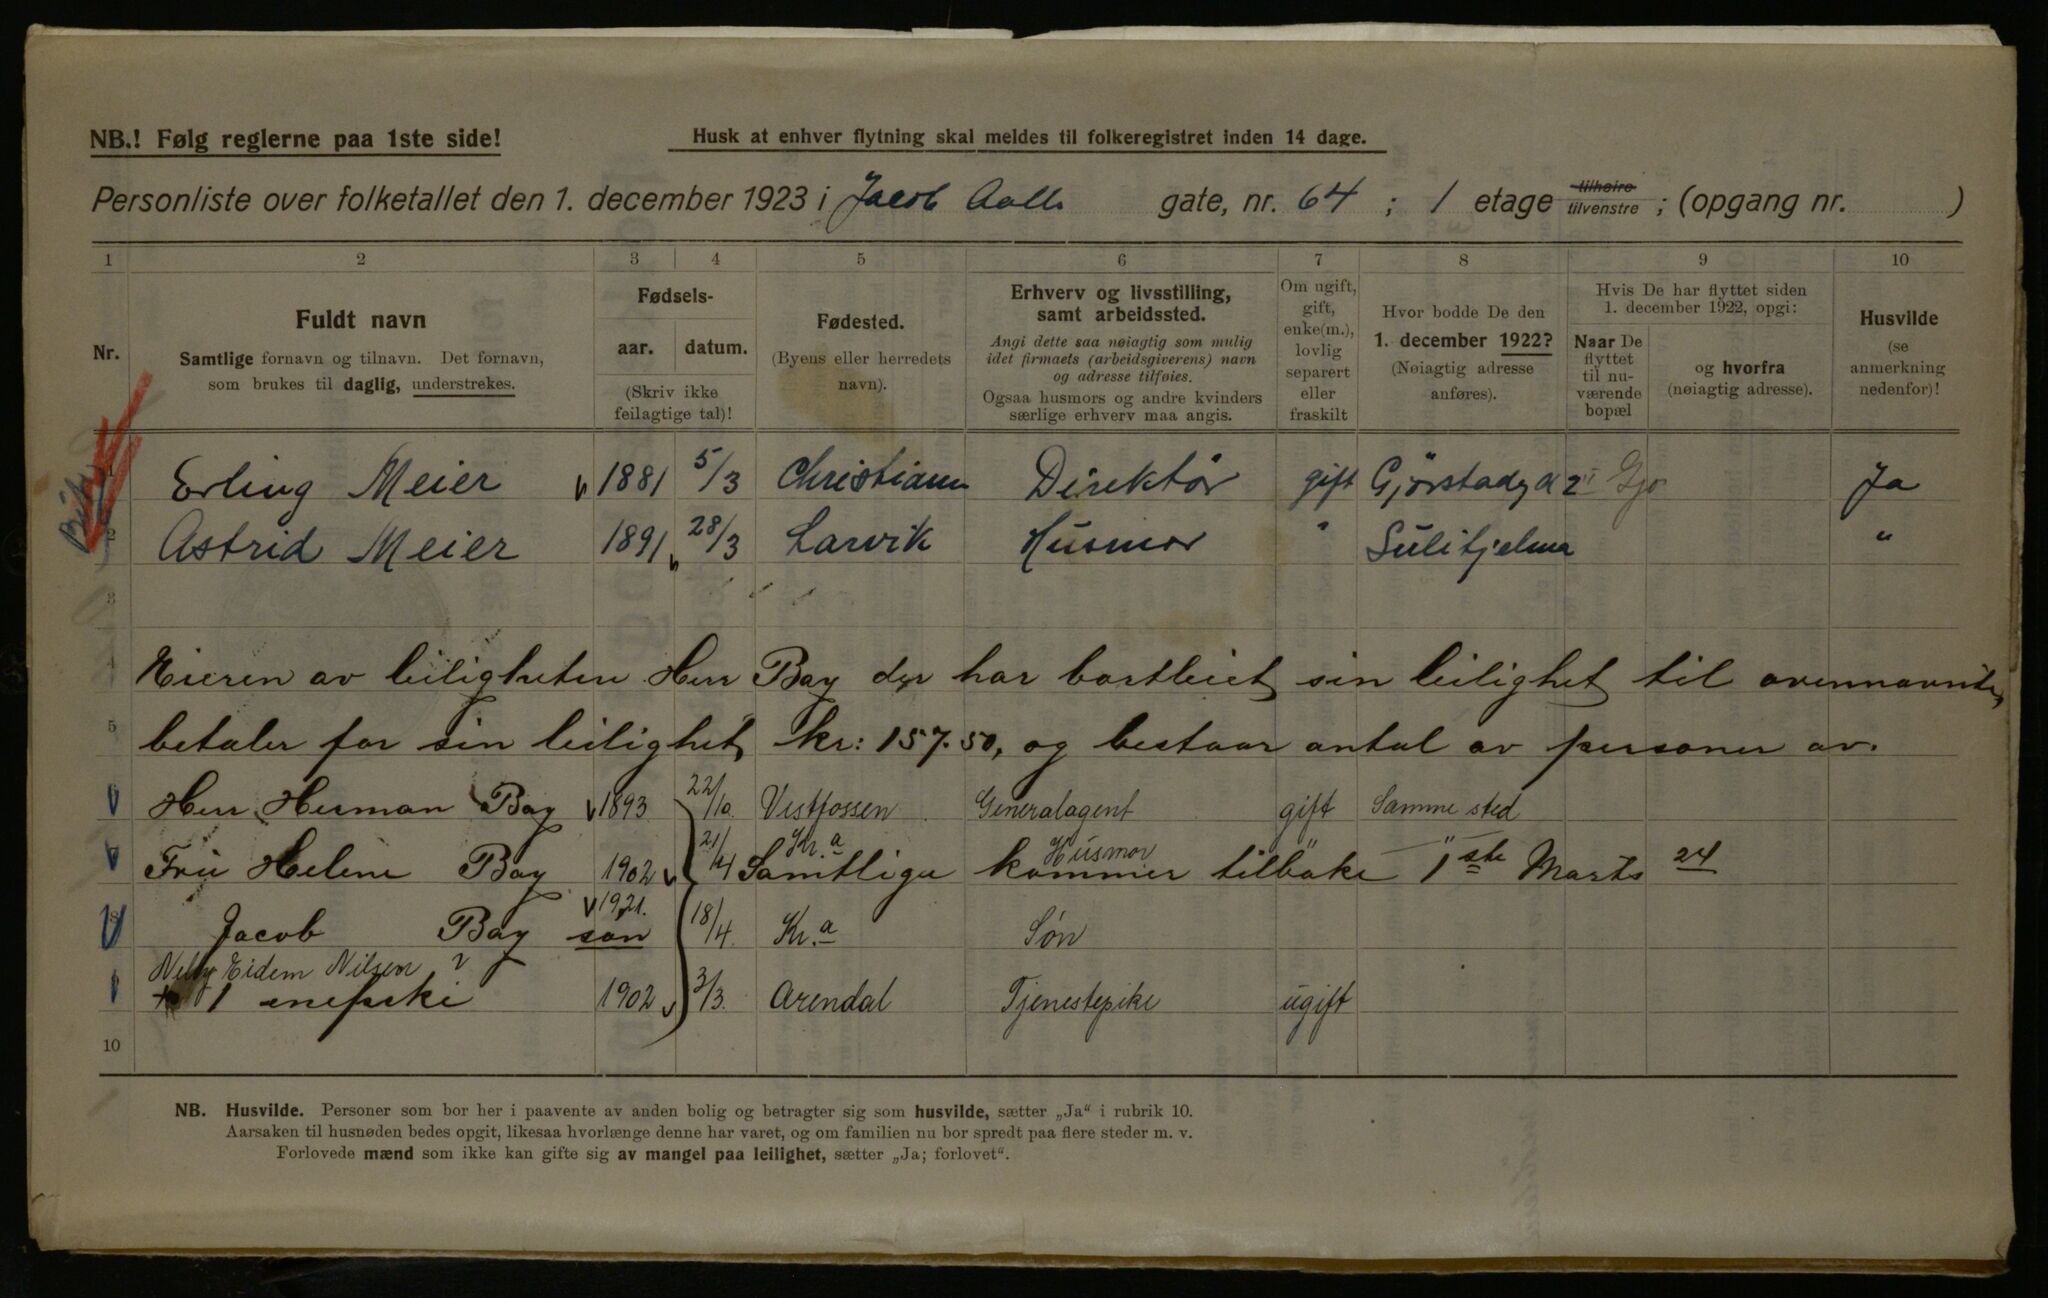 NB.! Følg reglerne paa 1ste side!
Husk at enhver flytning skal meldes til folkeregistret inden 14 dage.
Personliste over folketallet den 1. december 1923 i Jacob Aalls gate, nr. 64 ; 1 etage tilhøire tilvenstre ; (opgang nr. )
1 2 3 4 5 6 7 8 9 10
Nr.
Fuldt navn
Samtlige fornavn og tilnavn. Det fornavn,
som brukes til daglig, understrekes.
Fødsels-
aar. datum.
(Skriv ikke
feilagtige tal)!
Fødested.
(Byens eller herredets
navn).
Erhverv og livsstilling,
samt arbeidssted.
Angi dette saa nøiagtig som mulig
idet firmaets (arbeidsgiverens) navn
og adresse tilføies.
Ogsaa husmors og andre kvinders
særlige erhverv maa angis.
Om ugift,
gift,
enke(m.),
lovlig
separert
eller
fraskilt
Hvor bodde De den
1. december 1922?
(Nøiagtig adresse
anføres).
Hvis De har flyttet siden
1. december 1922, opgi:
Naar De
flyttet
til nu-
værende
bopæl
og hvorfra
(nøiagtig adresse).
Husvilde
(se
anmerkning
nedenfor)!
1 Erling Meier 1881 5/3 Christiania Direktör gift Gjörstadg 2 Ja
2 Astrid Meier 1891 28/3 Larvik Husmor " Sulitjelma "
3
4 Eieren av leiligheten Herr Bay der har bortleiet sin leilighet til ovennavnte,
5 betaler for sin leilighet kr: 157.50, og bestaar antal av personer av.
6 Herr Herman Bay 1893 22/10. Vestfossen Generalagent gift Samme sted
7 Fru Helene Bay 1902 21/4 Kr.a Husmor " "
Samtlige kommer tilbake 1ste Marts 24
8 Jacob Bay søn 1921. 18/4. Kr.a Søn
Nelly Eidem Nilsen
+ 1 enepike 1902 3/3. Arendal Tjenestepike ugift
10
NB. Husvilde. Personer som bor her i paavente av anden bolig og betragter sig som husvilde, sætter „Ja“ i rubrik 10.
Aarsaken til husnøden bedes opgit, likesaa hvorlænge denne har varet, og om familien nu bor spredt paa flere steder m. v.
Forlovede mænd som ikke kan gifte sig av mangel paa leilighet, sætter „Ja; forlovet“.